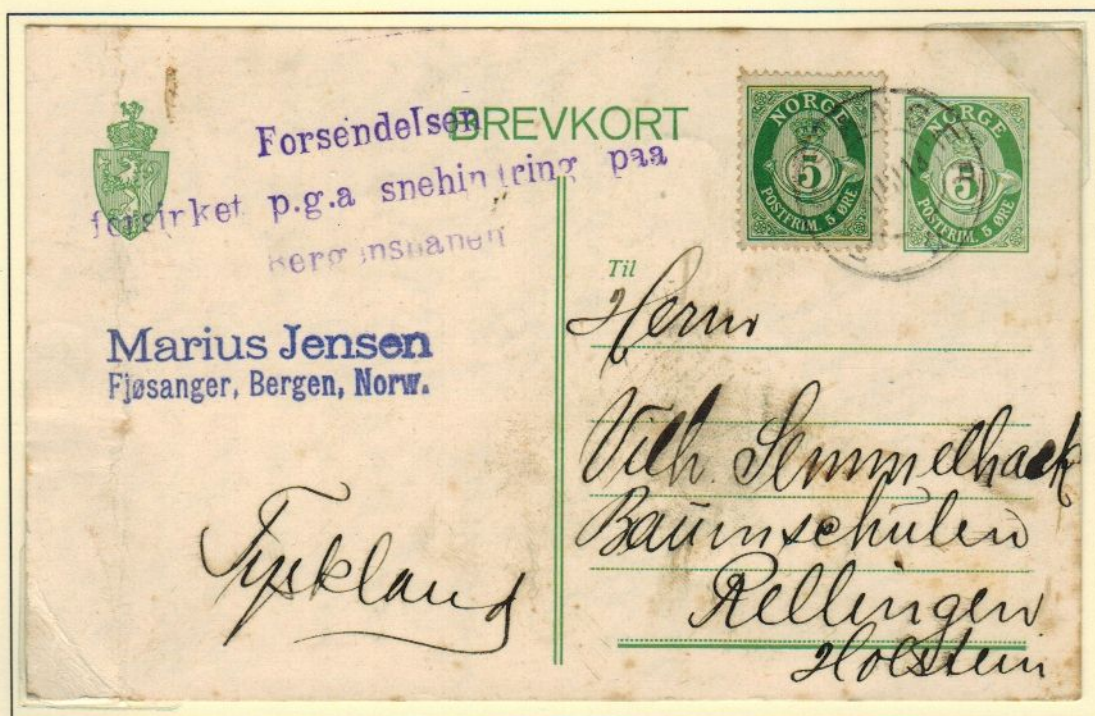 BREVKORT
Forsendelsen
forsinket p.g.a snehindring paa
Bergensbanen
NORGE
5
POSTFRIM. 5 ØRE
NORGE
5
POSTFRIM. 5 ØRE
Marius Jensen
Fjøsanger, Bergen, Norw.
Tyskland
Til
Herrn
Vilh. Semmelhaack
Baumschulen
Rellingen
Holstein